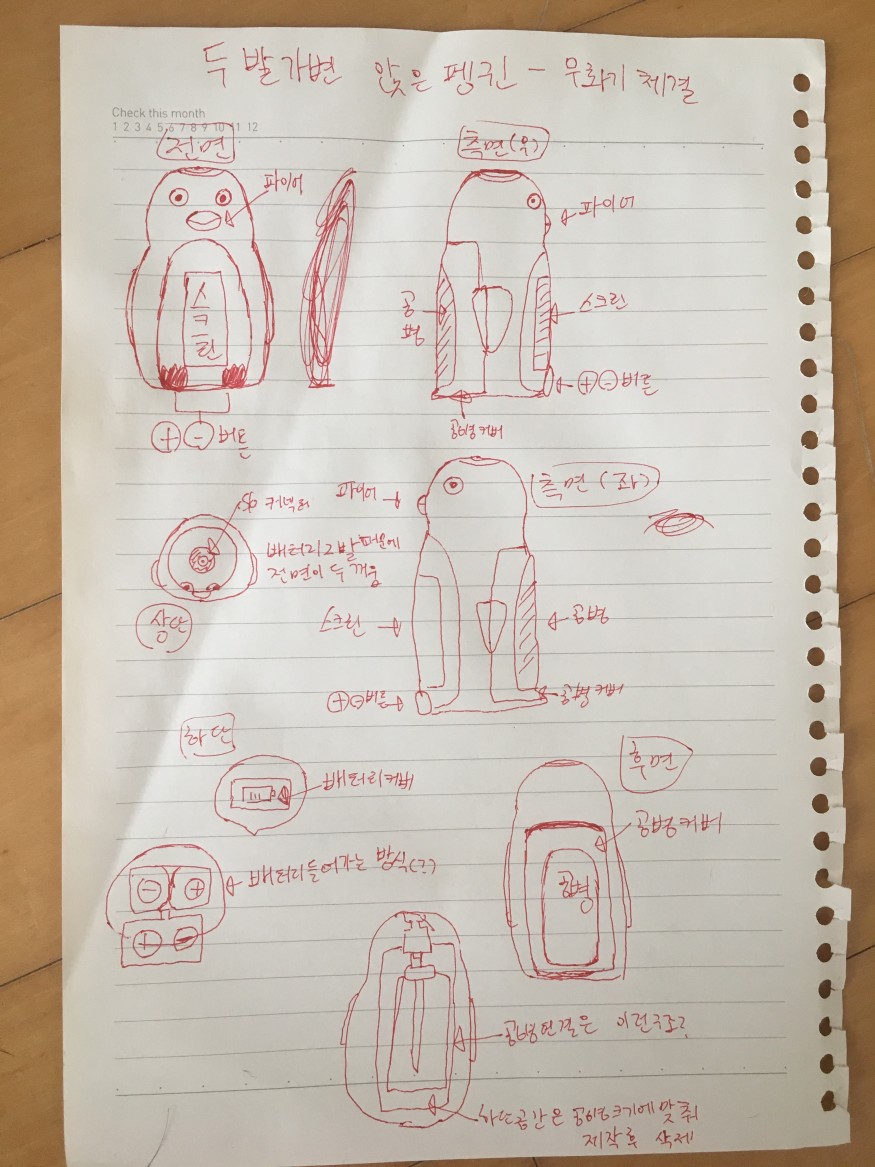 두 발 가변 앉은 펭귄 - 무화기 체결
Check this month
1 2 3 4 5 6 7 8 9 10 11 12
전면
측면(우)
파이어
파이어
스크린
공병
스크린
⊕⊖ 버튼
⊕⊖버튼
공병커버
측면(좌)
커넥터
파이어
배터리 2발 때문에
전면이 두꺼움
상단
스크린
공병
⊕⊖버튼
공병커버
하단
후면
배터리커버
공병커버
배터리 들어가는 방식(?)
⊖ ⊕
⊕ ⊖
공병
공병연결은 이런구조?
하단공간은 공병크기에 맞춰
제작후 삭제